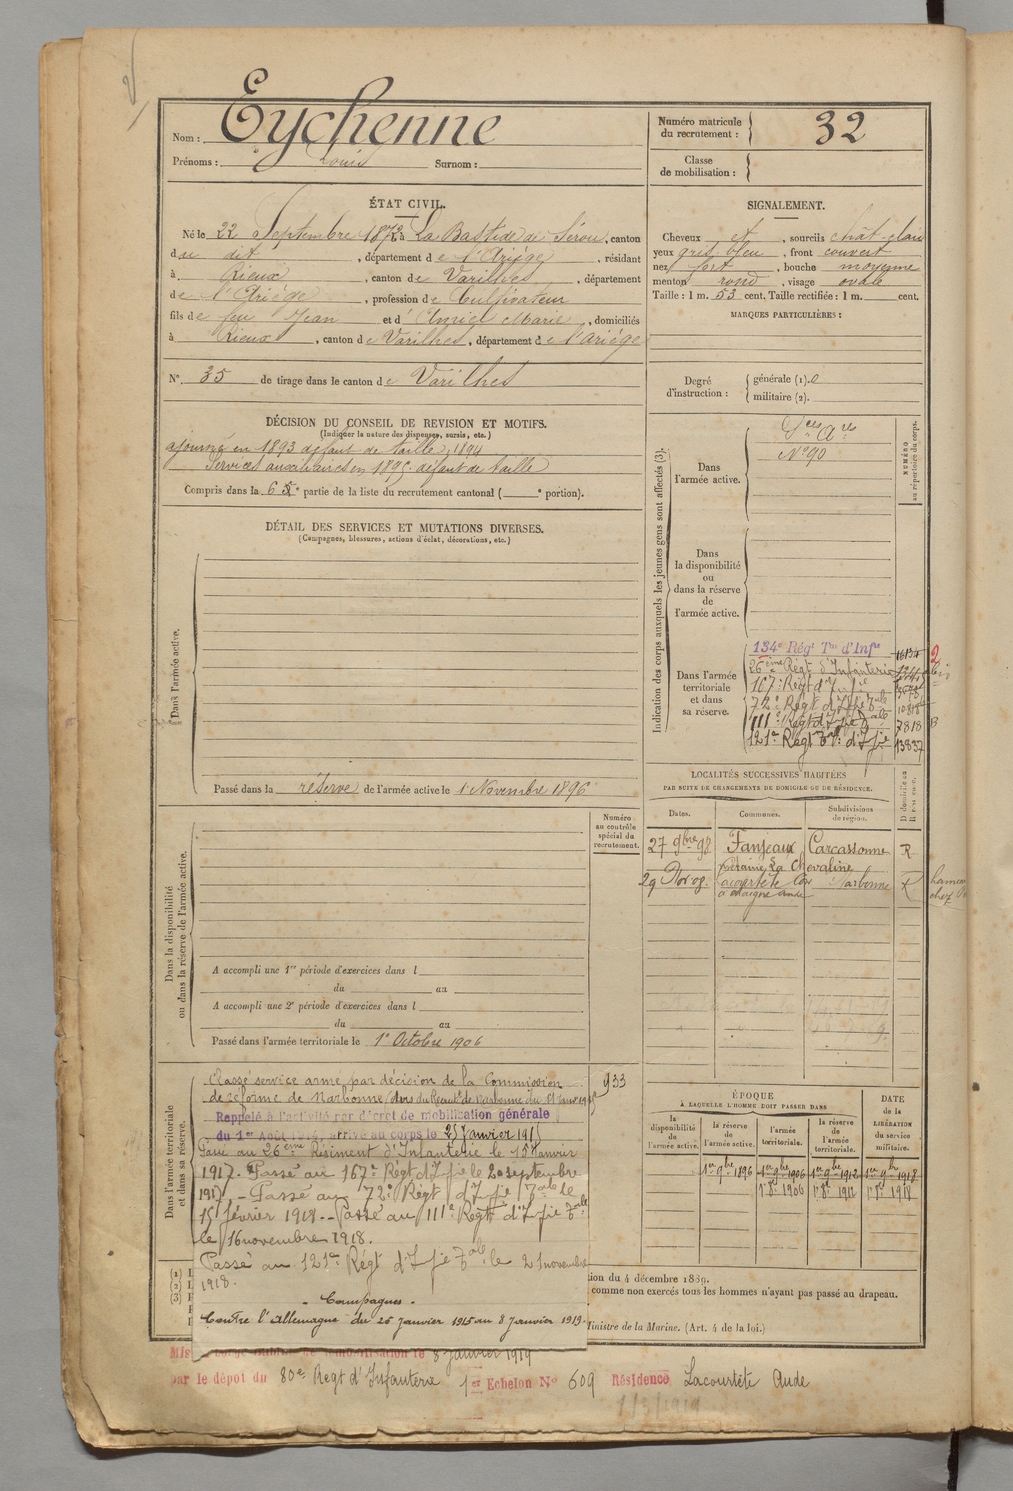 Nom : Eychenne
Prénoms : Louis Surnom :
Numéro matricule du recrutement : 32
Classe de mobilisation :
ÉTAT CIVIL.
Né le 22 Septembre 1872 à La Bastide de Sérou, canton
du dit, département de l'Ariège, résidant
à Rieux, canton de Varilhes, département
de l'Ariège, profession de Cultivateur
fils de feu Jean et d' Amiel Marie, domiciliés
à Rieux, canton de Varilhes, département de l'Ariège
N° 35 de tirage dans le canton de Varilhes
SIGNALEMENT.
Cheveux et, sourcils chât-clair
yeux gris bleu, front couvert
nez fort, bouche moyenne
menton rond, visage ovale
Taille : 1 m. 53 cent. Taille rectifiée : 1 m. cent.
MARQUES PARTICULIÈRES :
Degré d'instruction : générale (1).
militaire (2).
DÉCISION DU CONSEIL DE REVISION ET MOTIFS.
(Indiquer la nature des dispenses, sursis, etc.)
ajourné en 1893 défaut de taille, 1894
Services auxiliaires en 1895 défaut de taille
Compris dans la 6 e partie de la liste du recrutement cantonal ( e portion).
DÉTAIL DES SERVICES ET MUTATIONS DIVERSES.
(Campagnes, blessures, actions d'éclat, décorations, etc.)
Dans l'armée active.
Passé dans la réserve de l'armée active le 1 Novembre 1896
Indication des corps auxquels les jeunes gens sont affectés (3).
NUMÉRO au répertoire du corps.
Dans l'armée active.
Sces Ares
N° 90
Dans la disponibilité ou dans la réserve de l'armée active.
Dans l'armée territoriale et dans sa réserve.
134e Régt Tal d'Infie
26ème Régt d'Infanterie
167e Régt d'Infie
72e Régt d'Ifie Tale
111e Régt d'Ifie Tale 7818
121e Régt Tal d'Ifie 13837
LOCALITÉS SUCCESSIVES HABITÉES
PAR SUITE DE CHANGEMENTS DE DOMICILE OU DE RÉSIDENCE.
Dates. Communes. Subdivisions de région. D domicile ou R résidence.
27 9bre 98 Fanjeaux Carcassonne R
métairie La Chevaline
29 Lacourtète Narbonne R
Dans la disponibilité ou dans la réserve de l'armée active.
Numéro au contrôle spécial du recrutement.
A accompli une 1re période d'exercices dans l
du au
A accompli une 2e période d'exercices dans l
du au
Passé dans l'armée territoriale le 1er Octobre 1906
Dans l'armée territoriale et dans sa réserve.
933
Classé service armé par décision de la Commission
de réforme de Narbonne
Rappelé à l'activité par décret de mobilisation générale
du 1er Août 1914, arrivé au corps le 25 Janvier 1915
Passé au 26ème Régiment d'Infanterie le 15 Janvier
1917. Passé au 167e Régt d'Ifie le 20 septembre
1917. - Passé au 72e Régt d'Ifie Tale le
15 février 1918. - Passé au 111e Régt d'Ifie Tale
le 16 novembre 1918.
Passé au 121e Régt d'Ifie Tale le 21 novembre
1918.
- Campagnes -
Contre l'Allemagne du 25 Janvier 1915 au 8 Janvier 1919.
ÉPOQUE
À LAQUELLE L'HOMME DOIT PASSER DANS
la disponibilité de l'armée active. la réserve de l'armée active. l'armée territoriale. la réserve de l'armée territoriale.
DATE de la LIBÉRATION du service militaire.
1er 9bre 1896 1er 9bre 1906 1er 9bre 1912 1er 9bre 1918
1er 8bre 1906 1er 8bre 1912 1er 8bre 1918
(1)
(2)
(3)
ion du 4 décembre 1889.
comme non exercés tous les hommes n'ayant pas passé au drapeau.
Ministre de la Marine. (Art. 4 de la loi.)
8 Janvier 1919
par le dépôt du 80e Régt d'Infanterie 1er Echelon N° 609 Résidence Lacourtète Aude
1/3/1919